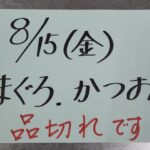 8/15(金)
まぐろ.かつお
品切れです